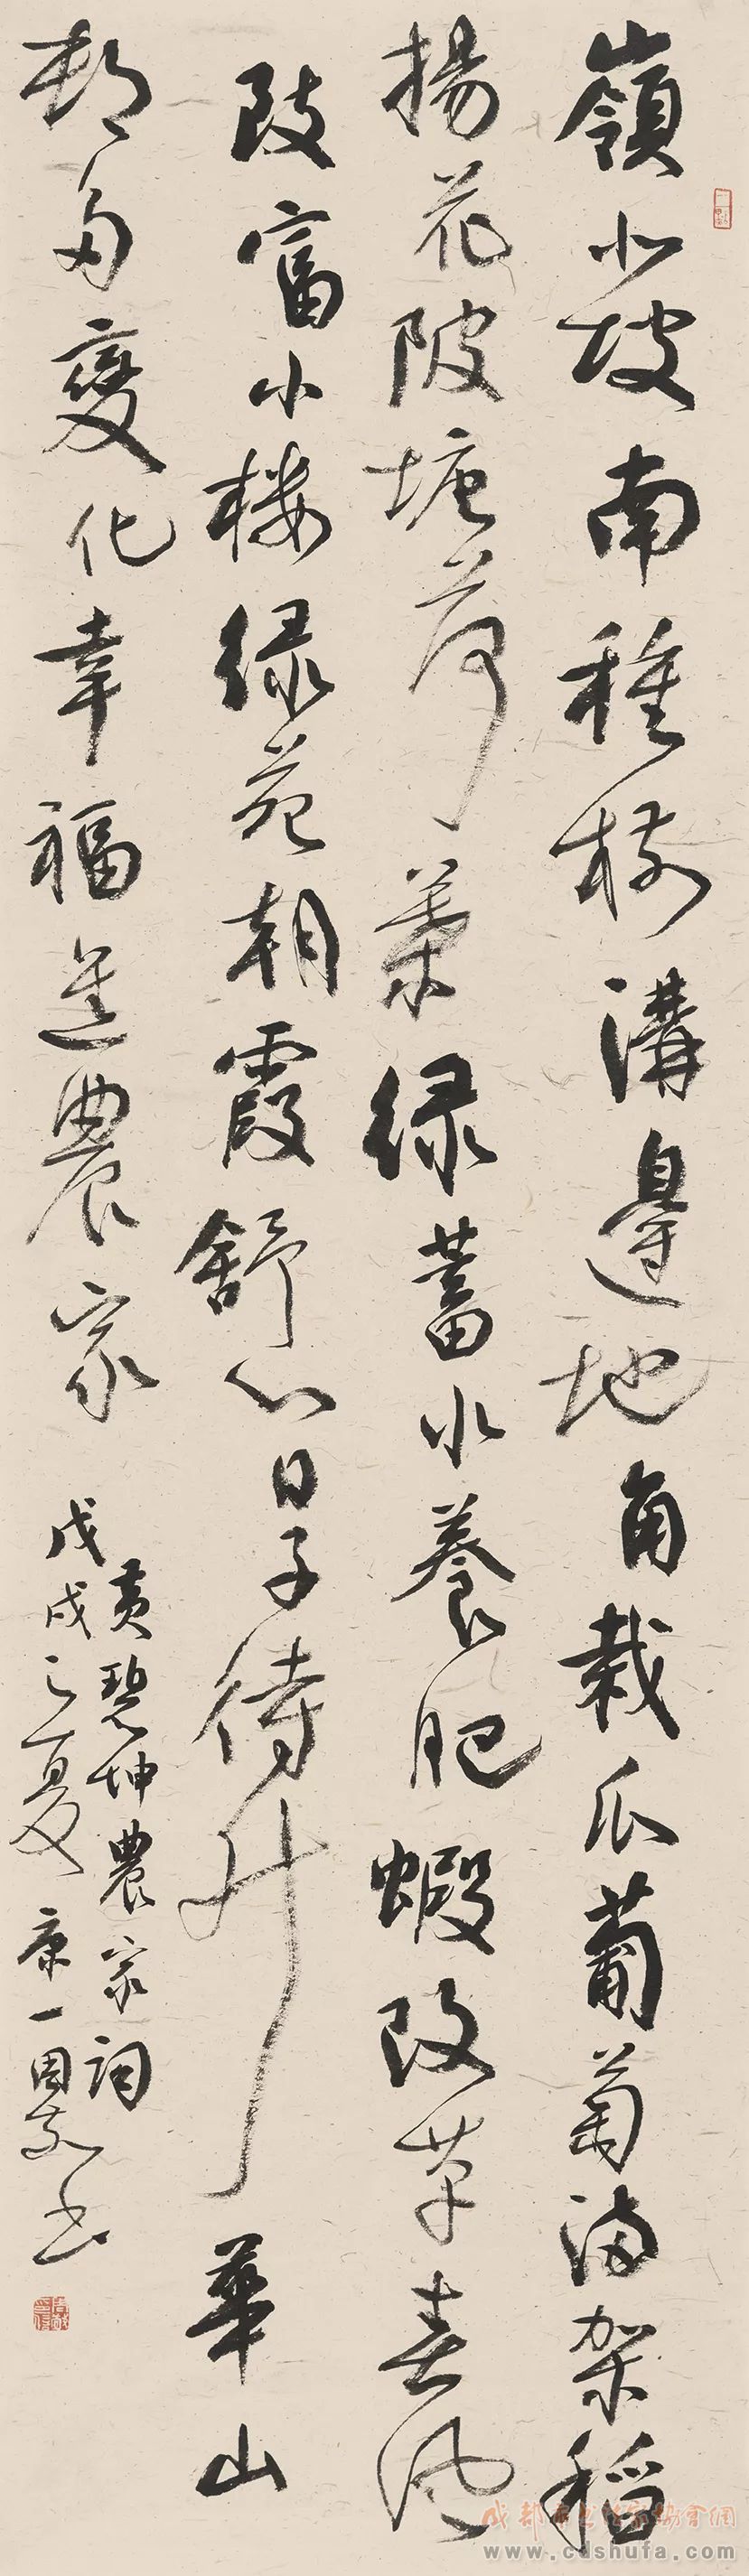 嶺北坡南種樹溝邊地角栽瓜葡萄滿架稻
揚花陂塘荷葉綠蓄水養肥蝦改革春風
致富小樓綠苑朝霞舒心日子待升華山
村多變化幸福送農家
黃碧坤農家詞
戊戌之夏康一周書
成都市書法家協會網
www.cdshufa.com